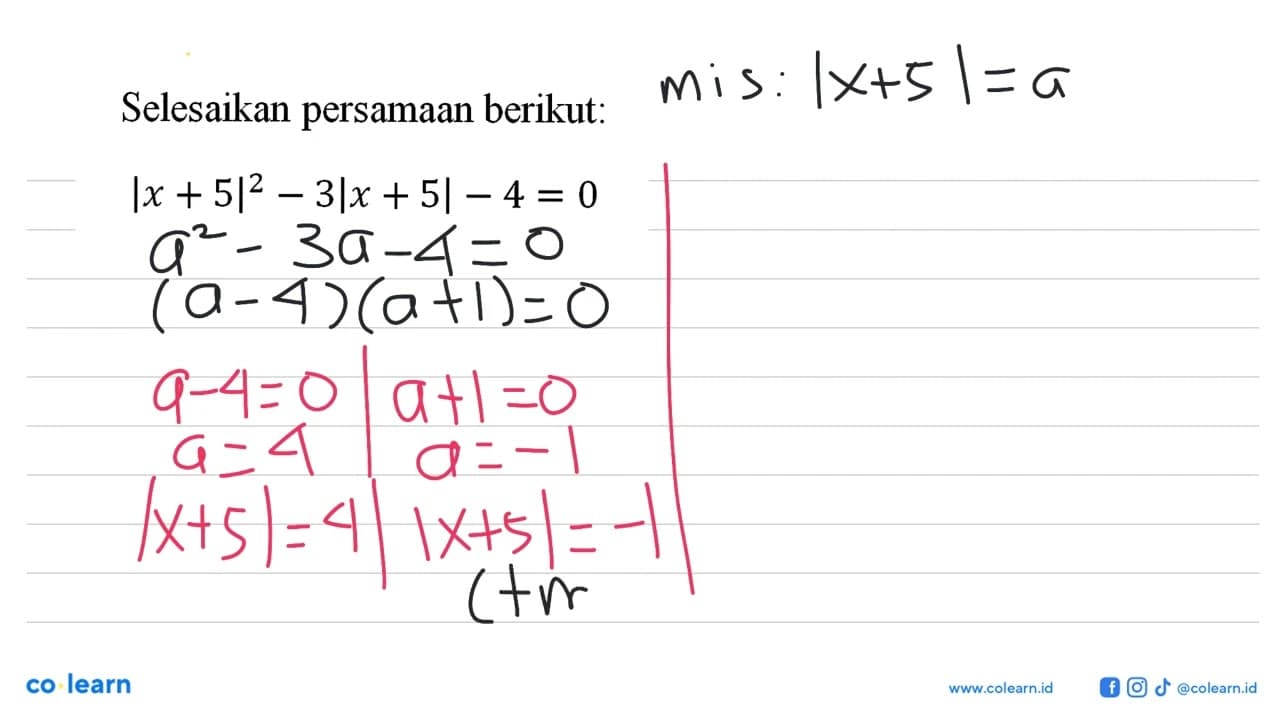 mis: |x+5|=a
Selesaikan persamaan berikut:
|x + 5|² − 3|x + 5| − 4 = 0
a² - 3a - 4 = 0
(a-4)(a+1)=0
a-4=0 | a+1=0
a=4 | a=-1
|x+5|=4 | |x+5|=-1
(tm
co learn
www.colearn.id
@colearn.id